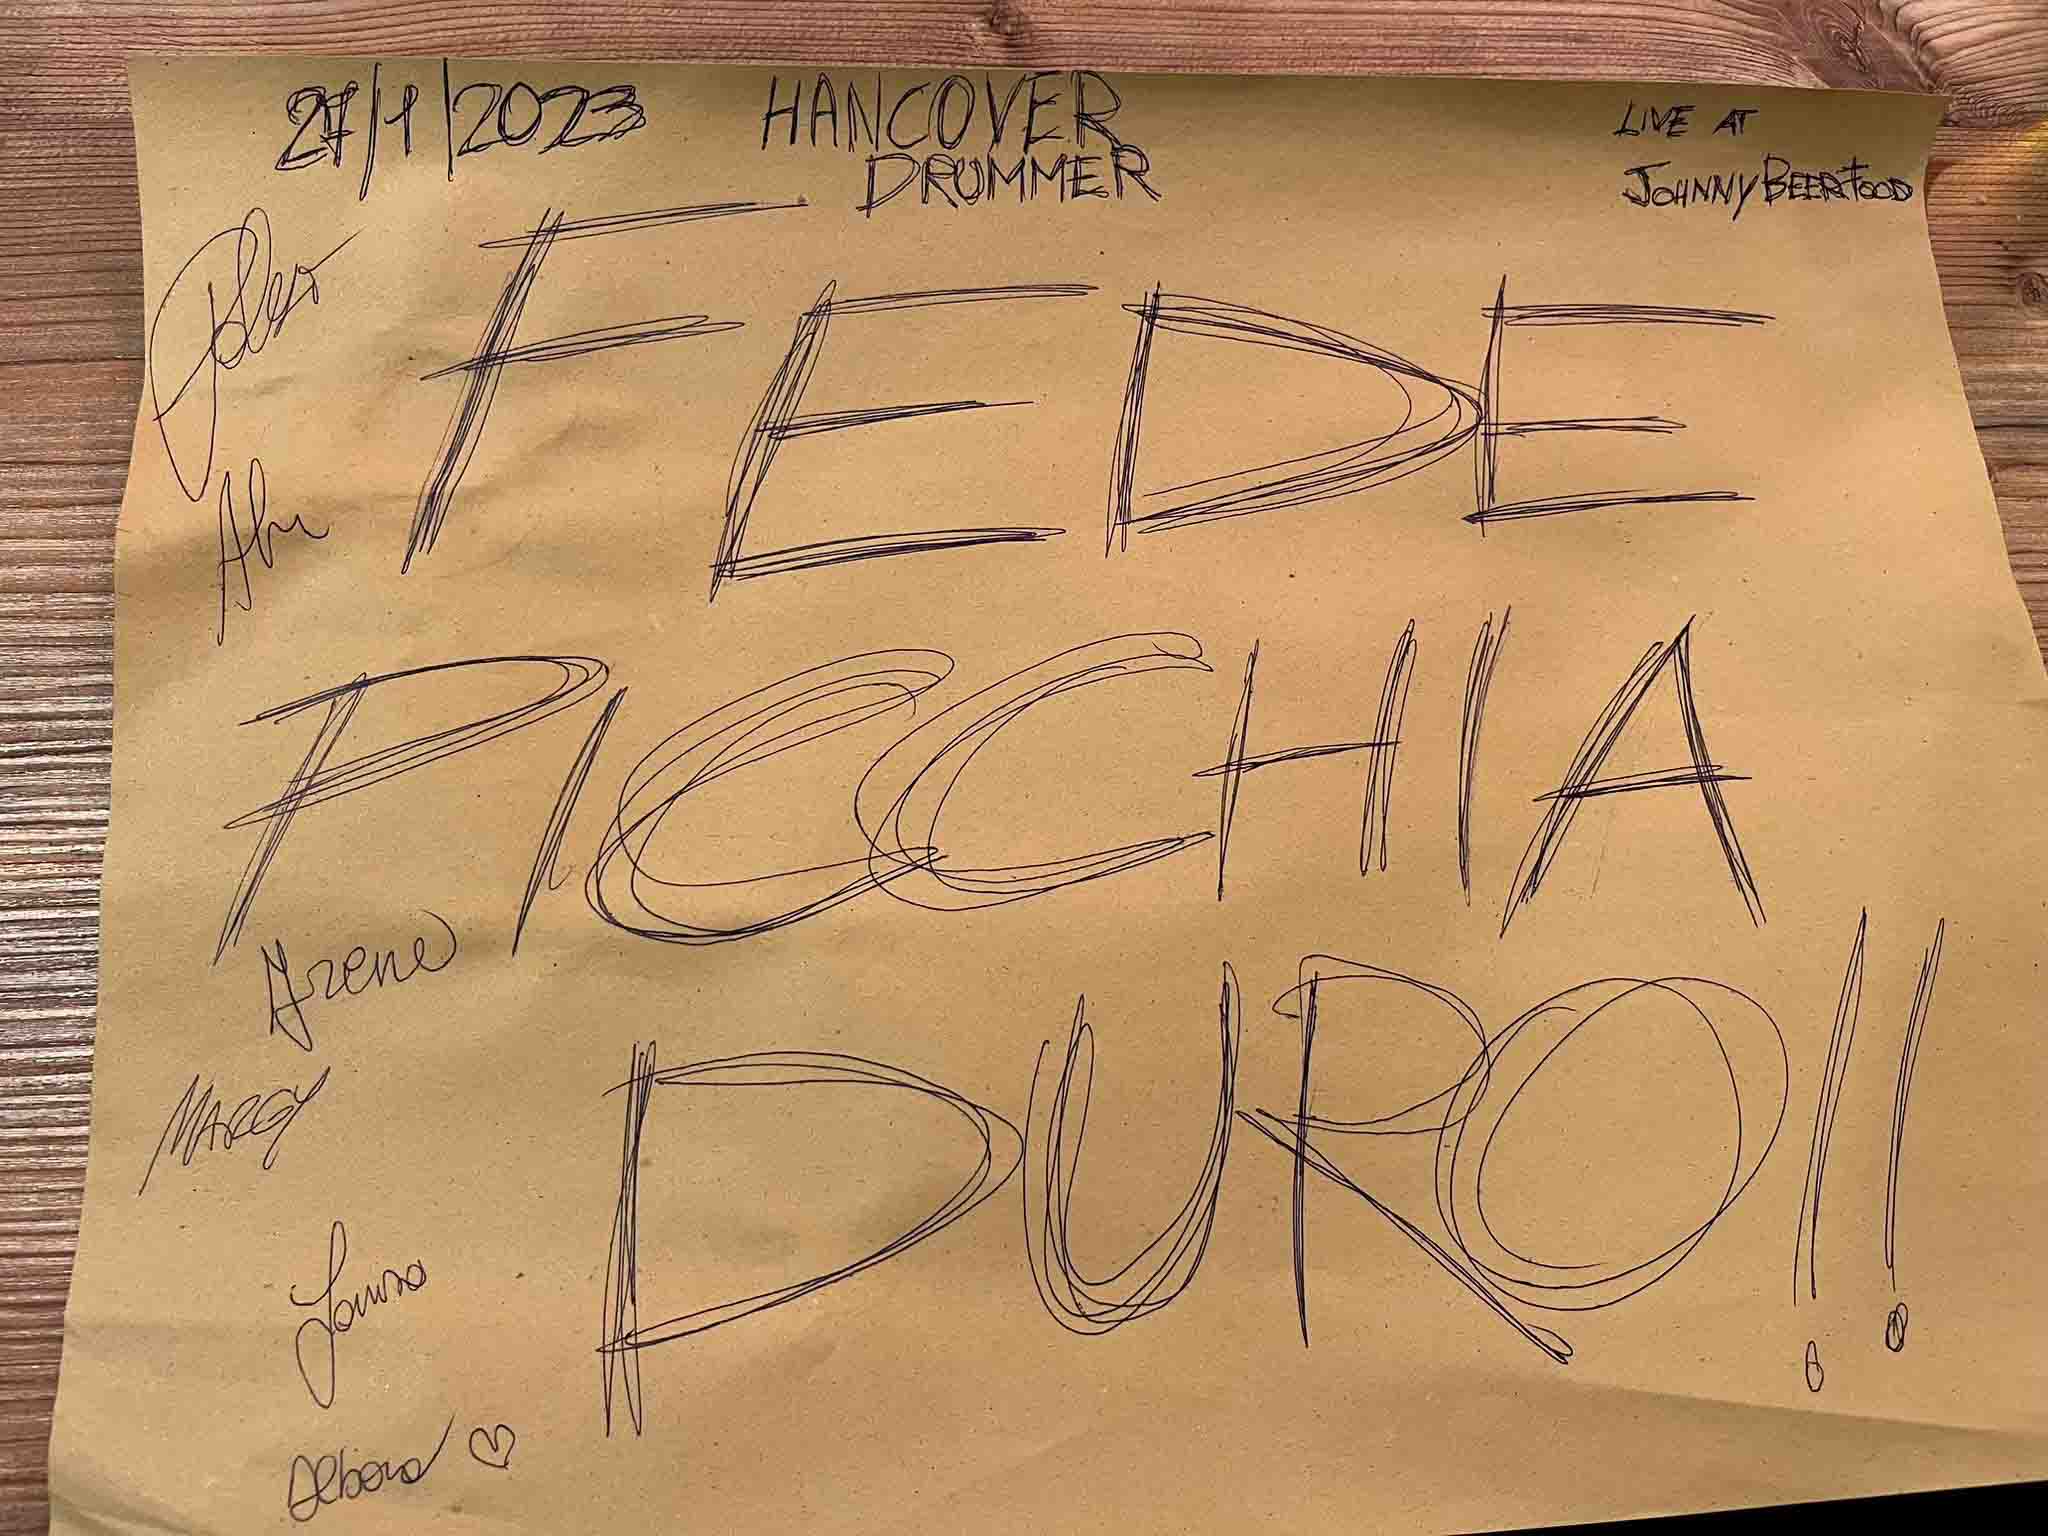 27/1/2023 HANCOVER
DRUMMER
LIVE AT
JOHNNY BEER FOOD
FEDE
PICCHIA
DURO!!
Irene
MARGY
Laura
Debora ♡